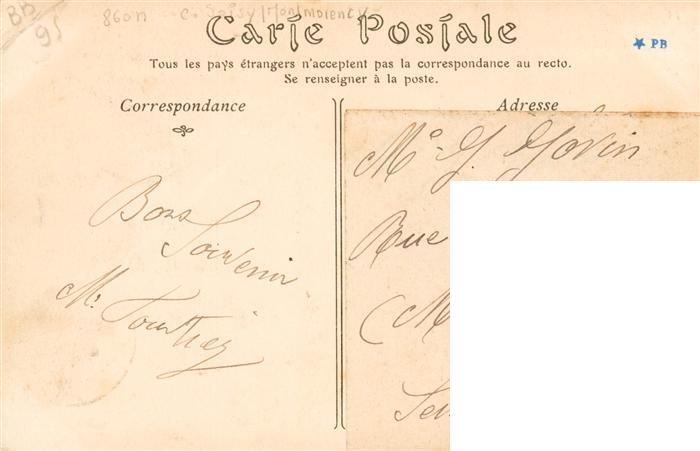 BB
95
860n c. Soisy/Montmorency
Carte Postale
★ PB
Tous les pays étrangers n'acceptent pas la correspondance au recto.
Se renseigner à la poste.
Correspondance
Adresse
Bons
Souvenir
M.
Me. G.
Rue
(M